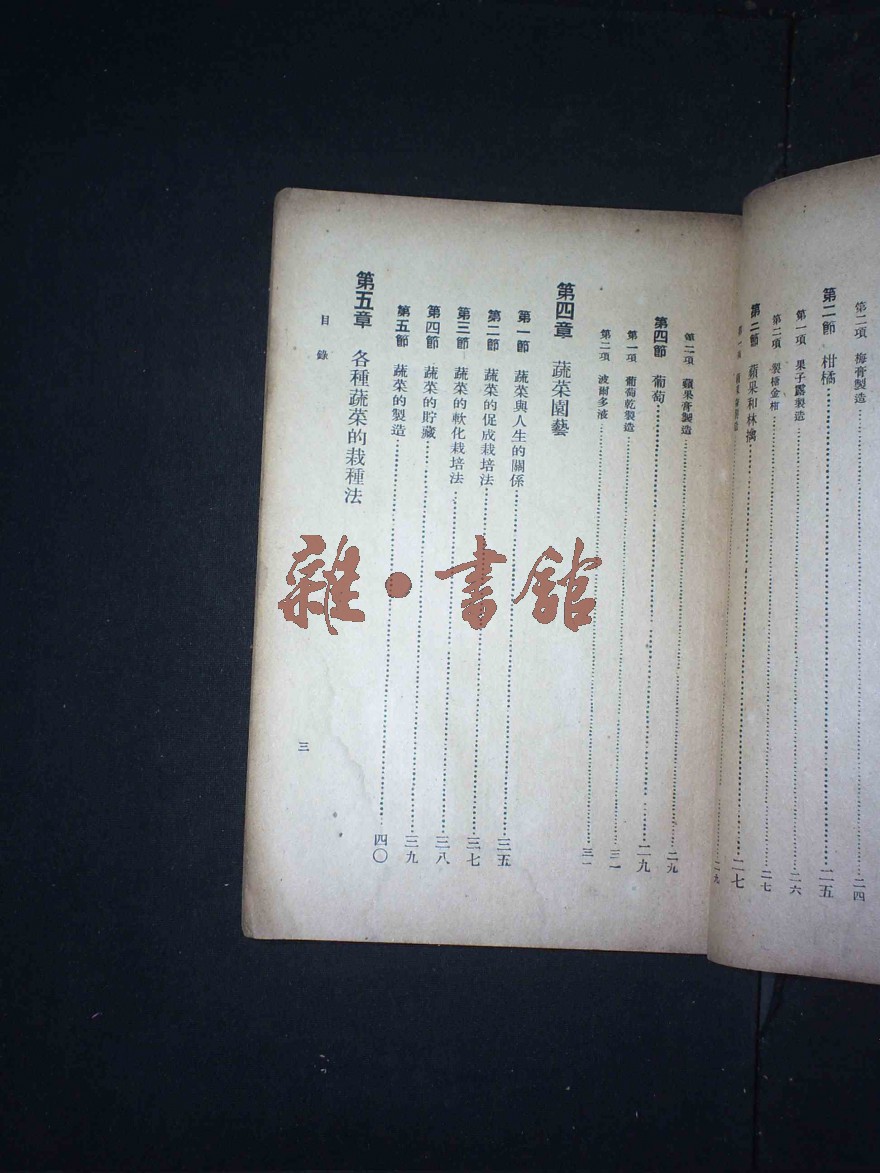 第二項 梅膏製造……二四
第二節 柑橘……二五
第一項 果子露製造……二六
第二項 製橙金柑……二七
第二節 蘋果和林擒……二七
第二項 蘋果膏製造……二九
第四節 葡萄……二九
第一項 葡萄乾製造……三一
第二項 波爾多液……三一
第四章 蔬菜園藝
第一節 蔬菜與人生的關係……三五
第二節 蔬菜的促成栽培法……三七
第三節 蔬菜的軟化栽培法……三八
第四節 蔬菜的貯藏……三九
第五節 蔬菜的製造……四〇
第五章 各種蔬菜的栽種法
目錄
三
雜·書館